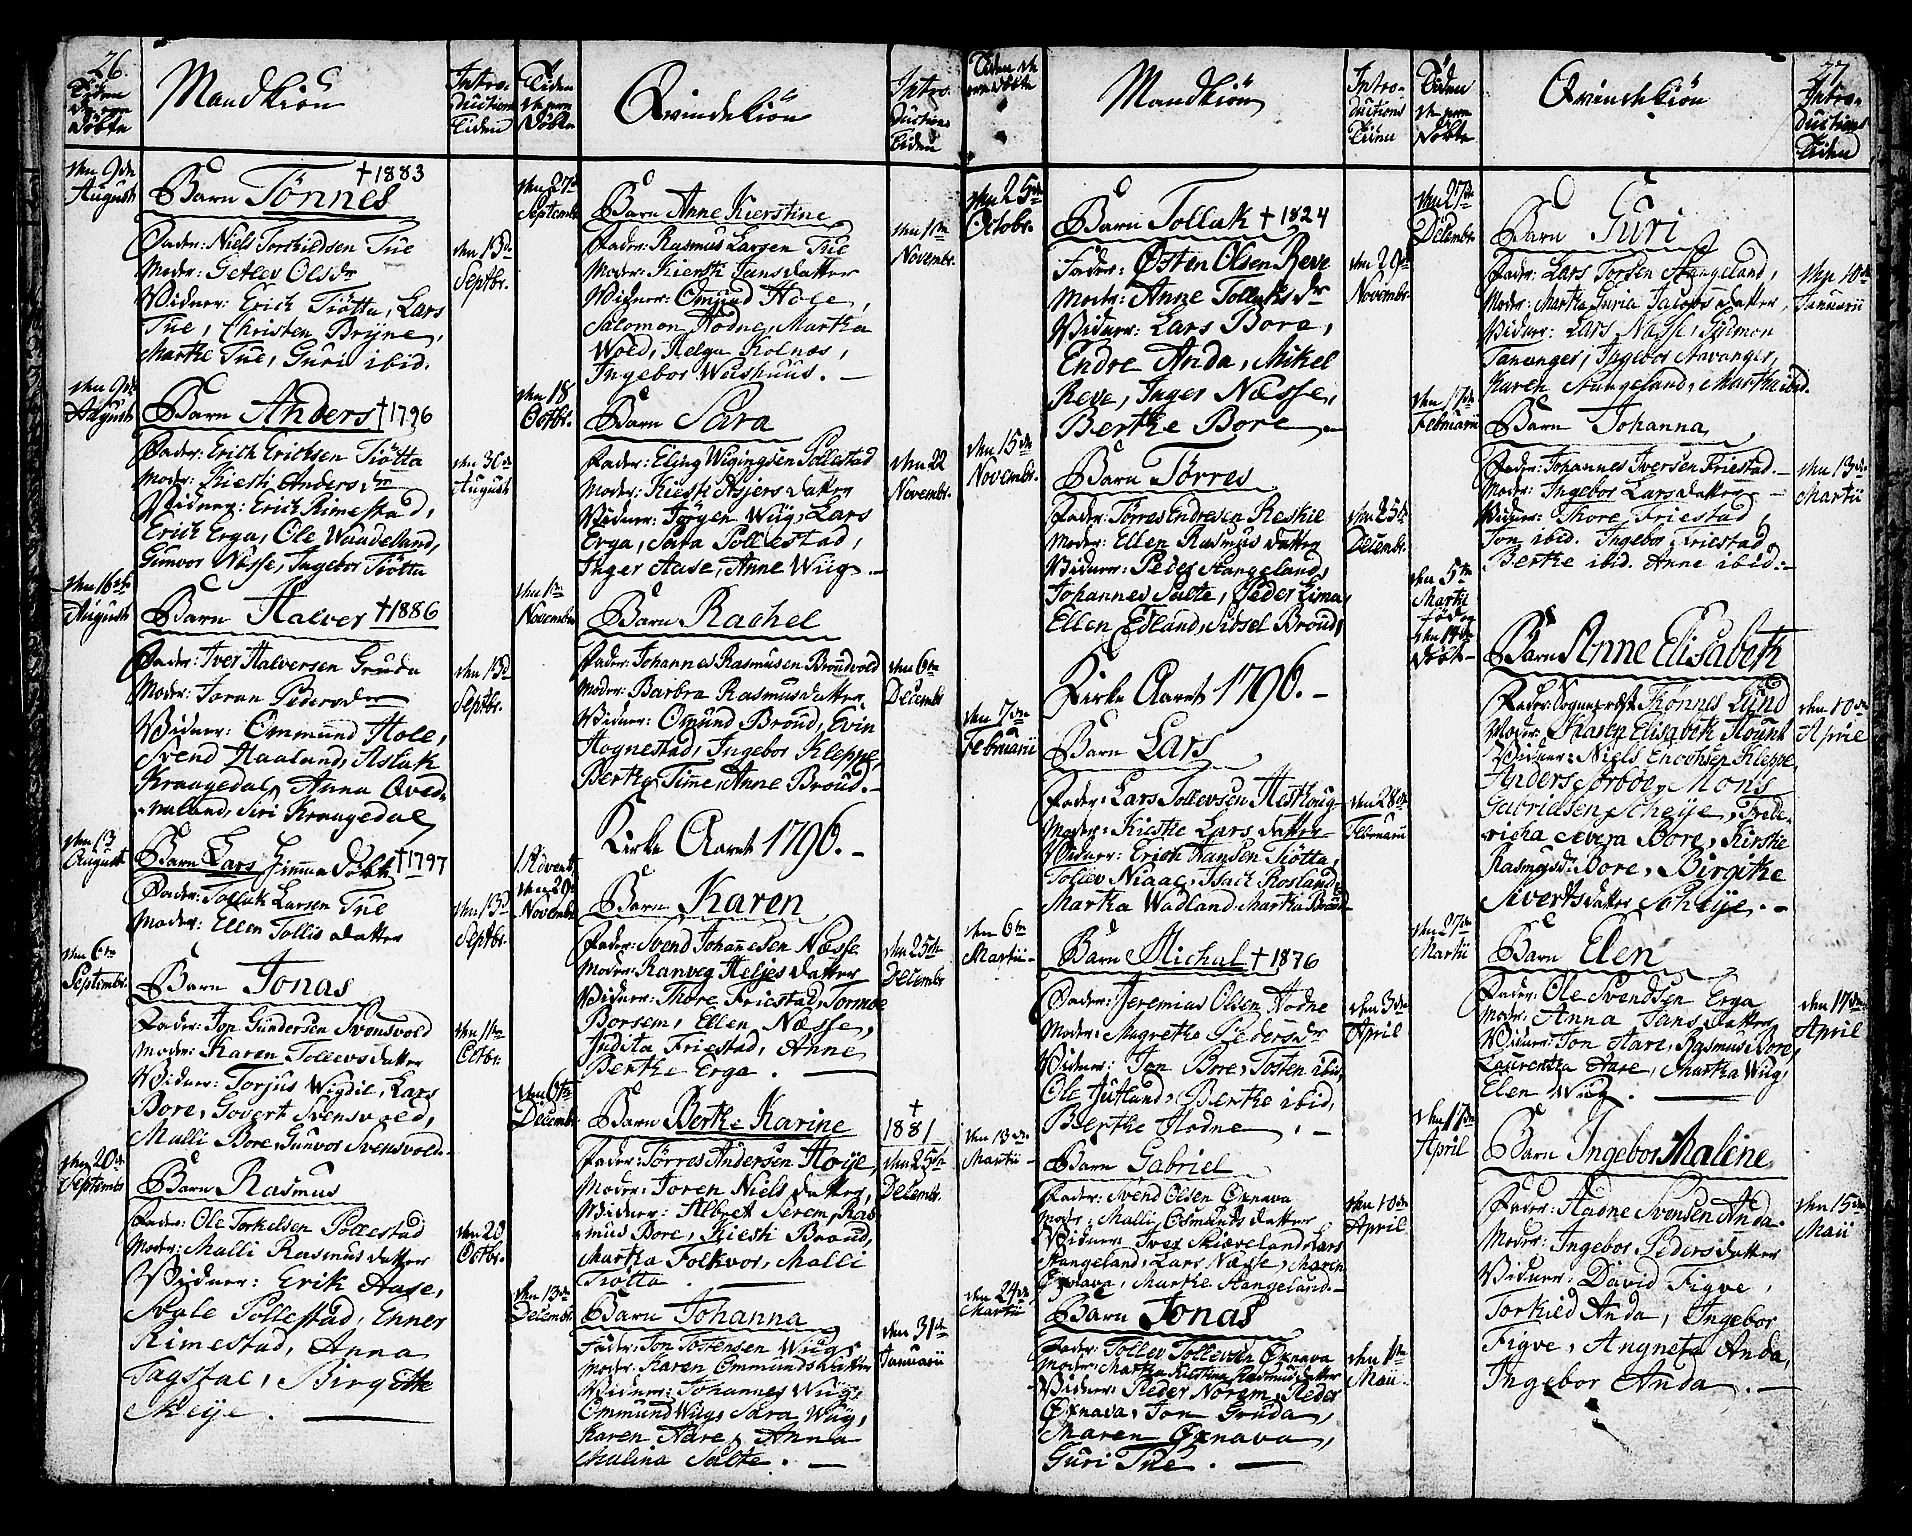 26.
Tiden
de ere
Døbte
Mandkiön
Intro-
ductions
Tiden
den 9de
August
Barn Tönnes
†1883
Fader: Niels Torkildsen Tue
Moder: Getlev Olsdr
Vidner: Erich Tiötta, Lars
Tue, Christen Bryne,
Marthe Tue, Guri ibid.
den 13de
Septbr.
den 9de
August
Barn Anders †1796
Fader: Erich Erichsen Tiötta
Moder: Kiesti Andersdr
Vidner: Erich Rimestad,
Erich Erga, Ole Waadeland,
Gunvor Næsse, Ingebor Tiötta
den 30te
August
den 16de
August
Barn Halver †1886
Fader: Iver Halversen Gruda
Moder: Joran Pedersdr
Vidner: Ommund Hole,
Svend Haaland, Aslak
Kraagedal, Anna Qved-
naland, Siri Kraagedal
den 13de
Septbr.
den 13
August
Barn Lars Hiemme Döbt †1797
Fader: Tollak Larsen Tue
Moder: Ellen Tollis datter
den 13de
Septbr.
den 6te
Septembr.
Barn Jonas
Fader: Jon Gundersen Svensvold
Moder: Karen Tollevs datter
Vidner: Torjus Wigdil, Lars
Bore, Govert Svensvold,
Malli Bore, Gunvor Svensvold.
den 11te
Octbr.
den 20de
Septembr
Barn Rasmus
Fader: Ole Torkelsen Pollestad
Moder: Malli Rasmus datter
Vidner: Erik Hase,
Svale Pollestad, Enner
Rimestad, Anna
Tagstal, Birgitte
Skeije.
den 20
Octbr.
Tiden
de ere
Döbte
Qvindekiön
Intro-
ductions
Tiden
den 27de
Septembr
Barn Anne Kierstine
Fader: Rasmus Larsen Tue
Moder: Kiersti Jansdatter
Vidner: Omund Hole,
Salomon Hodne, Martha
Wold, Helga Kolnæs,
Ingebor Washuus.
den 1ste
Novembr.
den 18
Octbr.
Barn Sara
Fader: Eling Wigingsen Pollestad
Moder: Kiesti Asjers datter
Vidner: Jörgen Wiig, Lars
Erga, Sara Pollestad,
Inger Hase, Anne Wiig.
den 22
Novembr.
den 1ste
Novembr
Barn Rachel
Fader: Johannes Rasmusen Bröudvold
Moder: Barbra Rasmusdatter
Vidner: Omund Bröud, Evin
Hognestad, Ingebor Kleppe,
Berthe Timme, Anne Bröud.
den 6te
Decembr
Kirke Aaret 1796.
1 Advent
den 29
Novembr
Barn Karen
Fader: Svend Johannesen Næsse
Moder: Ranveg Heljes datter
Vidner: Thore Friestad, Tormoe
Borsem, Ellen Næsse,
Judita Friestad, Anne
Berthe Erga.
den 25de
Decembr
den 6te
Decembr
Barn Berthe Karine
†
1881
Fader: Törres Andersen Hoije
Moder: Joren Niels datter
Vidner: Albret Serem, Ras-
mus Bore, Kiesti Braud,
Martha Folkvor, Malli
Tiötta.
den 25de
Decembr.
den 13de
Decembr.
Barn Johanna
Fader: Jon Tostensen Wiig
Moder: Karen Ommundsdatter
Vidner: Johannes Wiig,
Ommund Wiig, Sara Wiig,
Karen Aare, Anna
Malina Salte.
den 31te
Januarii
Tiden de
ere Döbte
Mandkiön
Intro-
ductions
Tiden
den 25de
Octobr.
Barn Tollak †1824
Fader: Østen Olsen Reve
Moder: Anne Tollaksdr
Vidner: Lars Bora,
Endre Anda, Mikel
Reve, Inger Næsse,
Berthe Bore.
den 29de
Novembr.
den 15de
Novembr.
Barn Törres
Fader: Törres Endresen Reskie
Moder: Ellen Rasmus datter
Vidner: Peder Stangeland,
Johannes Salte, Peder Lima,
Ellen Edland, Sidsel Bröud.
den 25de
Decembr.
Kirke Aaret 1796.
den 7de
Februarii
Barn Lars
Fader: Lars Tollevsen Hestehoug
Moder: Kiestie Lars datter
Vidner: Erich Hansen Tiötta,
Tollev Niaae, Isack Rosland,
Martha Wadland, Martha Bröud
den 28de
Februarii
den 6te
Martii
Barn Michal †1876
Fader: Jeremias Olsen Hodne
Moder: Magrethe Pedersdr
Vidner: Jon Bore, Tosten ibid,
Ole Jutland, Berthe ibid,
Berthe Hodne.
den 3de
April
den 13de
Martii
Barn Gabriel
Fader: Svend Olsen Øxnava
Moder: Malli Osmunds datter
Vidner: Iver Skiæveland, Lars
Stangeland, Lars Næsse, Maren
Øxnava, Marthe Stangeland.
den 10de
April
den 24de
Martii
Barn Jonas
Fader: Tollev Tollevsen Øxnava
Moder: Martha Kiestina Rasmus datter
Vidner: Peder Norem, Peder
Øxnava, Jon Gruda,
Maren Øxnava,
Guri Tue.
den 1ste
Maii.
Tiden
de ere
Döbte
Qvindekiön
27.
Intro-
ductions
Tiden
den 27de
Decembr.
Barn Guri
Fader: Lars Torsen Stangeland,
Moder: Martha Guria Jacobs datter,
Vidner: Lars Næsse, Gudmon
Tananger, Ingebor Stavanger,
Karen Stangeland, Martha ibid.
den 10de
Januarii
den 17de
Februarii
Barn Johanna
Fader: Johannes Iversen Friestad.
Moder: Ingebor Lars datter
Vidner: Thore Friestad,
Jon ibid. Ingebor Friestad,
Berthe ibid. Anne ibid.
den 13de
Martii
den 5te
Martii
föd og
den 14de
döbt
Barn Anne Elisabeth
Fader: Sogneprest Thönnes Lund
Moder: Maren Elisabeth Hount
Vidner: Niels Enochsen Kleppe,
Anders Orboe, Mons
Gabrielsen Scheije, Frede-
richa Severa Bore, Kirstie
Rasmusdr. Bore, Birgithe
Siverts datter Scheije.
den 10de
April
den 27de
Martii
Barn Elen
Fader: Ole Svendsen Erga
Moder: Anna Jans datter
Vidner: Jon Hare, Rasmus Bore,
Laurentia Hase, Martha Wiig,
Elen Wiig.
den 17de
April
den 17de
April
Barn Ingebor Malene
Fader: Hadne Svensen Anda
Moder: Ingebor Peders datter
Vidner: David Figve,
Torkild Anda, Ingebor
Figve, Angneta Anda,
Ingebor Anda.
den 15de
Maii